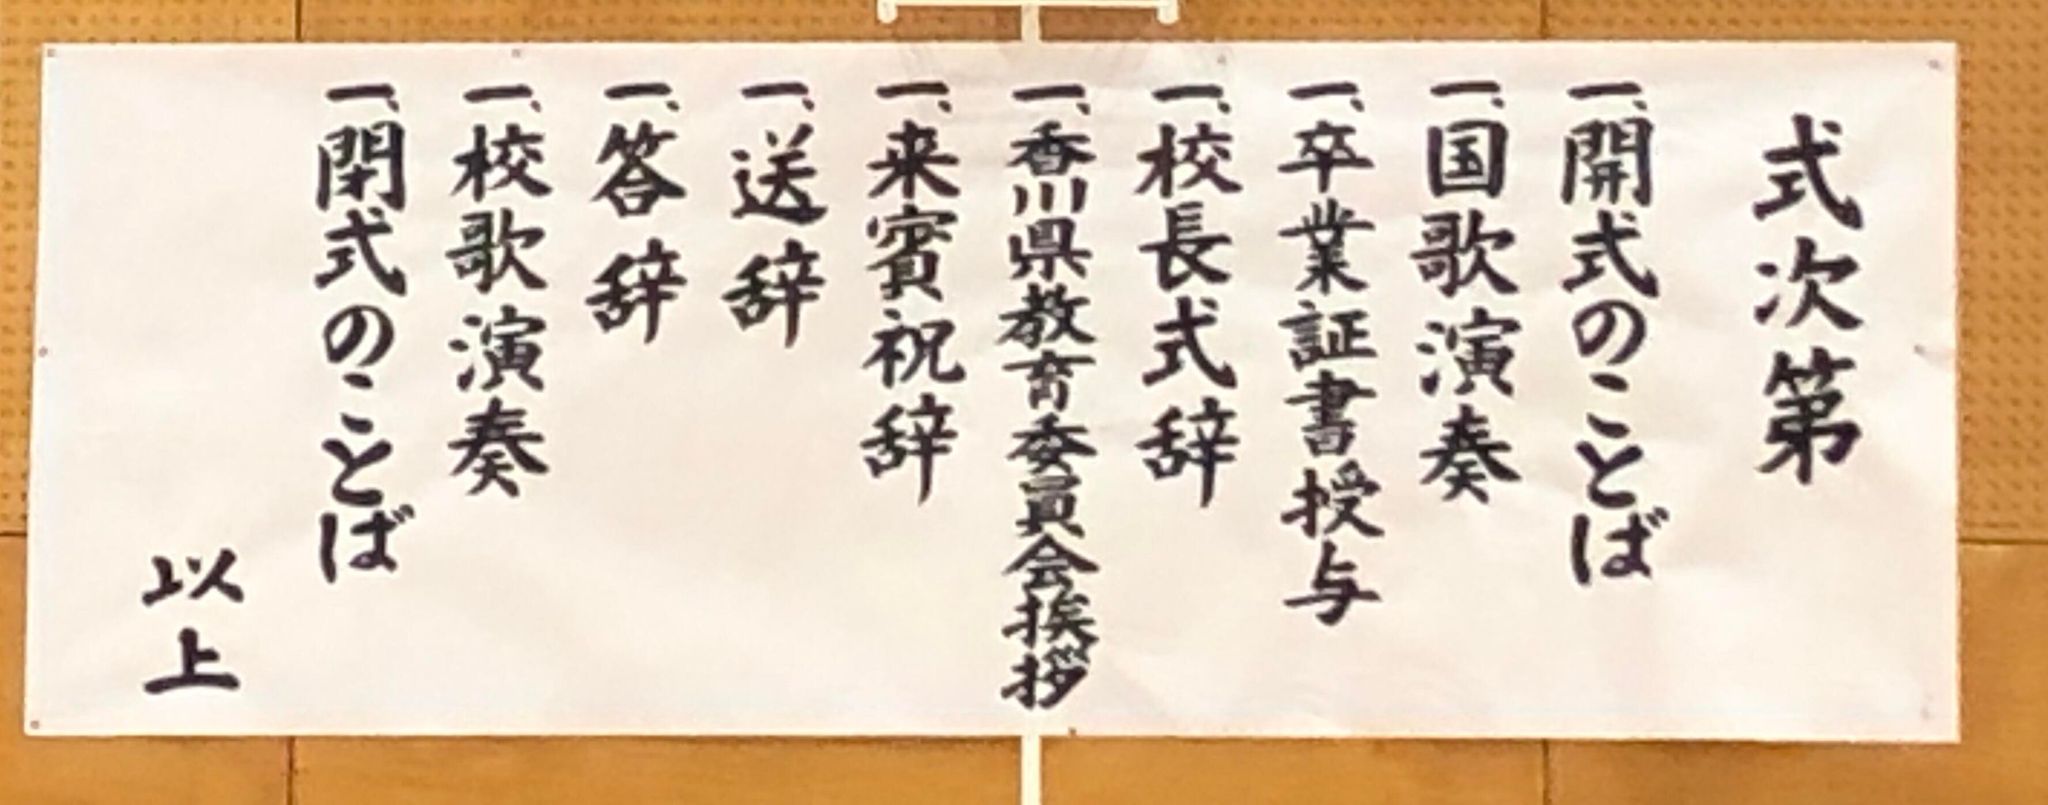 式次第
一、開式のことば
一、国歌演奏
一、卒業証書授与
一、校長式辞
一、香川県教育委員会挨拶
一、来賓祝辞
一、送辞
一、答辞
一、校歌演奏
一、閉式のことば
以上